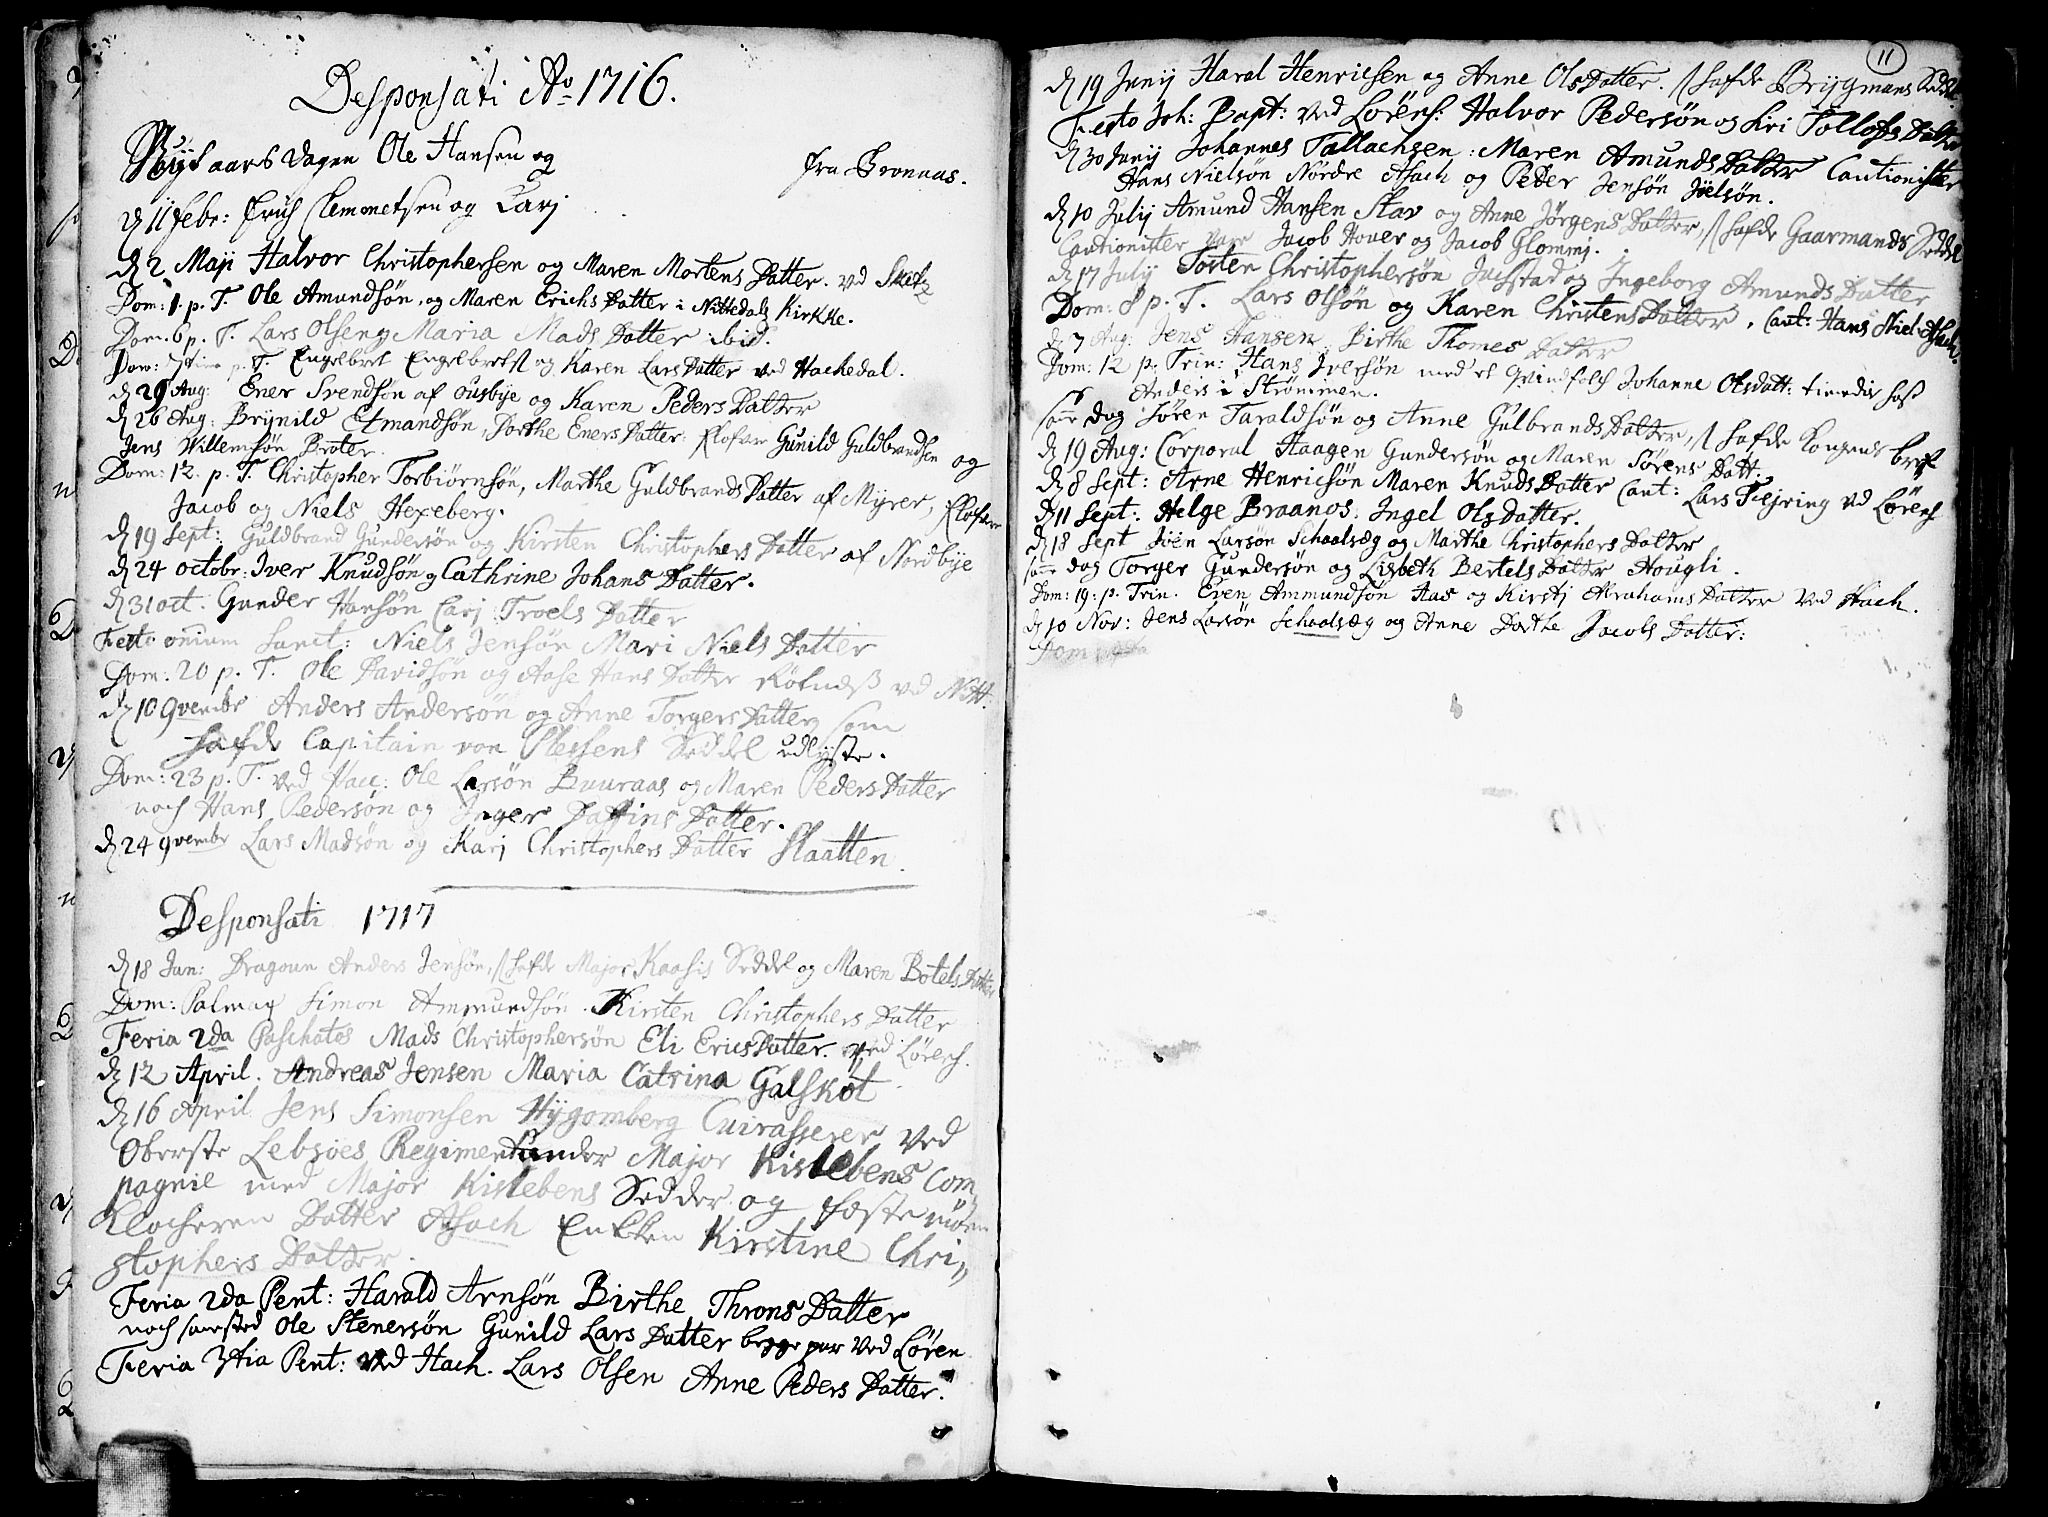 Desponsati Ao 1716.
Nyt aars dagen Ole Hansen og
fra
d 11 Febr: Erich Clemmetsen og Karj
d 2 Maji Halvor Christophersen og Maren Mortens Datter. ved
Dom: 1. p. T. Ole Amundsøn, og Maren Erichs Datter i Nittedals Kirkke.
Dom. 6 p. T. Lars Olsen og Maria Mads Datter ibid.
Dom: 7 p. T. Engelbret Engelbretst og Karen Lars Datter ved Hachedal.
d 29 Aug: Ener Svendsøn af Husbye og Karen Peders Datter
d 26 Aug: Brynild Etmandsøn, Dorthe Eners Datter: Elofver Gunild Guldbrandsen og
Jens Willemsøn Broter.
Dom: 12. p. T. Christopher Torbiørnsøn, Marthe Guldbrands Datter af Myrer, Elofver
Jacob og Niels Hexeberg.
d 19 Sept: Guldbrand Gundersøn og Kirsten Christophers Datter af Nordbye
d 24 octobr: Iver Knudsøn og Cathrine Johans Datter.
d 31 oct. Gunder Hansøn Carj Troels Datter
Festo omium Sanct: Niels Jensøn Mari Niels Datter
Dom: 20 p. T. Ole Davidsøn og Aase Hans Datter Rotnæss ved Nitt:
d 10 9vembr Anders Andersøn og Anne Torgers Datter som
hafde Capitain von Plessens Seddel udlyste.
Dom: 23 p. T. ved Hacc: Ole Larsøn Buuraas og Maren Peders Datter
noch Hans Pedersøn og Inger Daffins Datter.
d 24 9vembr Lars Madsøn og Karj Christophers Datter Slaatten.
Desponsati 1717
d 18 Jan: Dragoun Anders Jensøn, hafde Major Kaasis Seddel og Maren Botels Datter
Dom: Palmar Simon Ammundsøn Kirsten Christophers Datter
Feria 2da Paschatos Mads Christophersøn Eli Erics Datter. ved Lørens.
d 12 April. Andreas Jensen Maria Catrina Galskøt
d 16 April Jens Simonsen Hÿgomberg Cuirasserer ved
Oberste Lebsøes Regiment under Major Kislebens Com
pagnie med Major Kislebens Sedder og fæste møen
Klocheren Datter Asach Enkken Kirstine Chri,,
stophers Datter.
Feria 2da Pent: Harald Arnsøn Birthe Throns Datter
noch samsted Ole Stenersøn Gunild Lars Datter begge par ved Løren
Feria 3tia Pent: ved Hach. Lars Olsen Anne Peders Datter.
11
d 19 Junij Haral Henricsen og Anne Ols Datter. hafde Brygmans Seddel
Festo Joh: Bapt: ved Lørens: Halvor Pedersøn og Siri Tollofs Datter
d 30 Junij Johannes Tallachsen: Maren Amunds Datter Cautionister
Hans Nielsøn Nordre Asach og Peder Jensøn Jøelsøn.
d 10 Julij Amund Hansen Stav og Anne Jørgens Datter, hafde Gaarmands Seddel
Cautionister vare Jacob Hover og Jacob Glommj.
d 17 Julij Tosten Christophersøn og Ingeborg Amunds Datter
Dom: 8 p. T. Lars Olsøn og Karen Christens Datter. Caut: Hans Niel: Asach.
d 7 Aug: Jens Hansen Birthe Thomes Datter
Dom: 12 p. Trin: Hans Iversøn med et Qvindfolch Johanne Olsdatt: tienedis hoss
Anders i Strømmen.
samme dag Søren Taraldsøn og Anne Gulbrands Datter, hafde Kongens bref
d 19 Aug: Corporal Haagen Gundersøn og Maren Sørens Datt.
d 8 Sept: Arne Henricsøn Maren Knuds Datter Caut: Lars Fejring ved Lørens
d 11 Sept: Helge Braanos. Ingel Ols Datter.
d 18 Sept Joen Larsøn Schaalsæg og Marthe Christophers Datter
samme dag Torger Gundersøn og Lisbeth Bertels Datter Hougli.
Dom: 19: p. Trin. Even Ammundsøn Aas og Kirstj Abrahams Datter ved Hach.
d 10 Nov: Jens Larsøn Schaalsæg og Anne Dorthe Jacobs Datter:
Dom